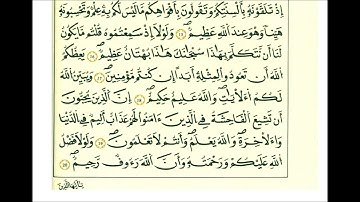 إِذْ تَلَقَّوْنَهُۥ بِأَلْسِنَتِكُمْ وَتَقُولُونَ بِأَفْوَاهِكُم مَّا لَيْسَ لَكُم بِهِۦ عِلْمٌ وَتَحْسَبُونَهُۥ
هَيِّنًا وَهُوَ عِندَ ٱللَّهِ عَظِيمٌ ۝ وَلَوْلَآ إِذْ سَمِعْتُمُوهُ قُلْتُم مَّا يَكُونُ
لَنَآ أَن نَّتَكَلَّمَ بِهَٰذَا سُبْحَٰنَكَ هَٰذَا بُهْتَٰنٌ عَظِيمٌ ۝ يَعِظُكُمُ
ٱللَّهُ أَن تَعُودُوا۟ لِمِثْلِهِۦٓ أَبَدًا إِن كُنتُم مُّؤْمِنِينَ ۝ وَيُبَيِّنُ ٱللَّهُ
لَكُمُ ٱلْءَايَٰتِ وَٱللَّهُ عَلِيمٌ حَكِيمٌ ۝ إِنَّ ٱلَّذِينَ يُحِبُّونَ
أَن تَشِيعَ ٱلْفَٰحِشَةُ فِى ٱلَّذِينَ ءَامَنُوا۟ لَهُمْ عَذَابٌ أَلِيمٌ فِى ٱلدُّنْيَا
وَٱلْءَاخِرَةِ وَٱللَّهُ يَعْلَمُ وَأَنتُمْ لَا تَعْلَمُونَ ۝ وَلَوْلَا فَضْلُ
ٱللَّهِ عَلَيْكُمْ وَرَحْمَتُهُۥ وَأَنَّ ٱللَّهَ رَءُوفٌ رَّحِيمٌ ۝